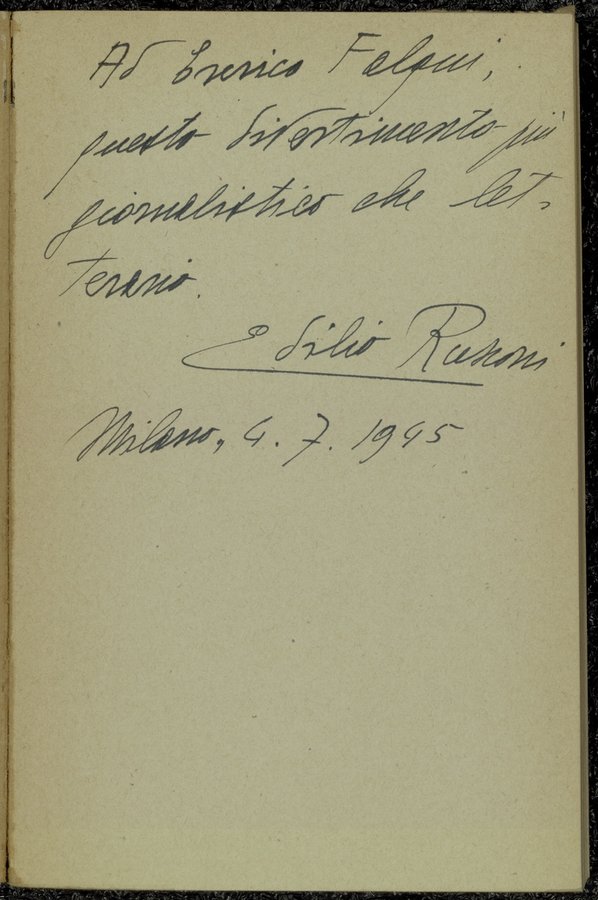 Ad Enrico Falqui,
questo divertimento più
giornalistico che let-
terario.
Edilio Rusconi
Milano, 4. 7. 1945